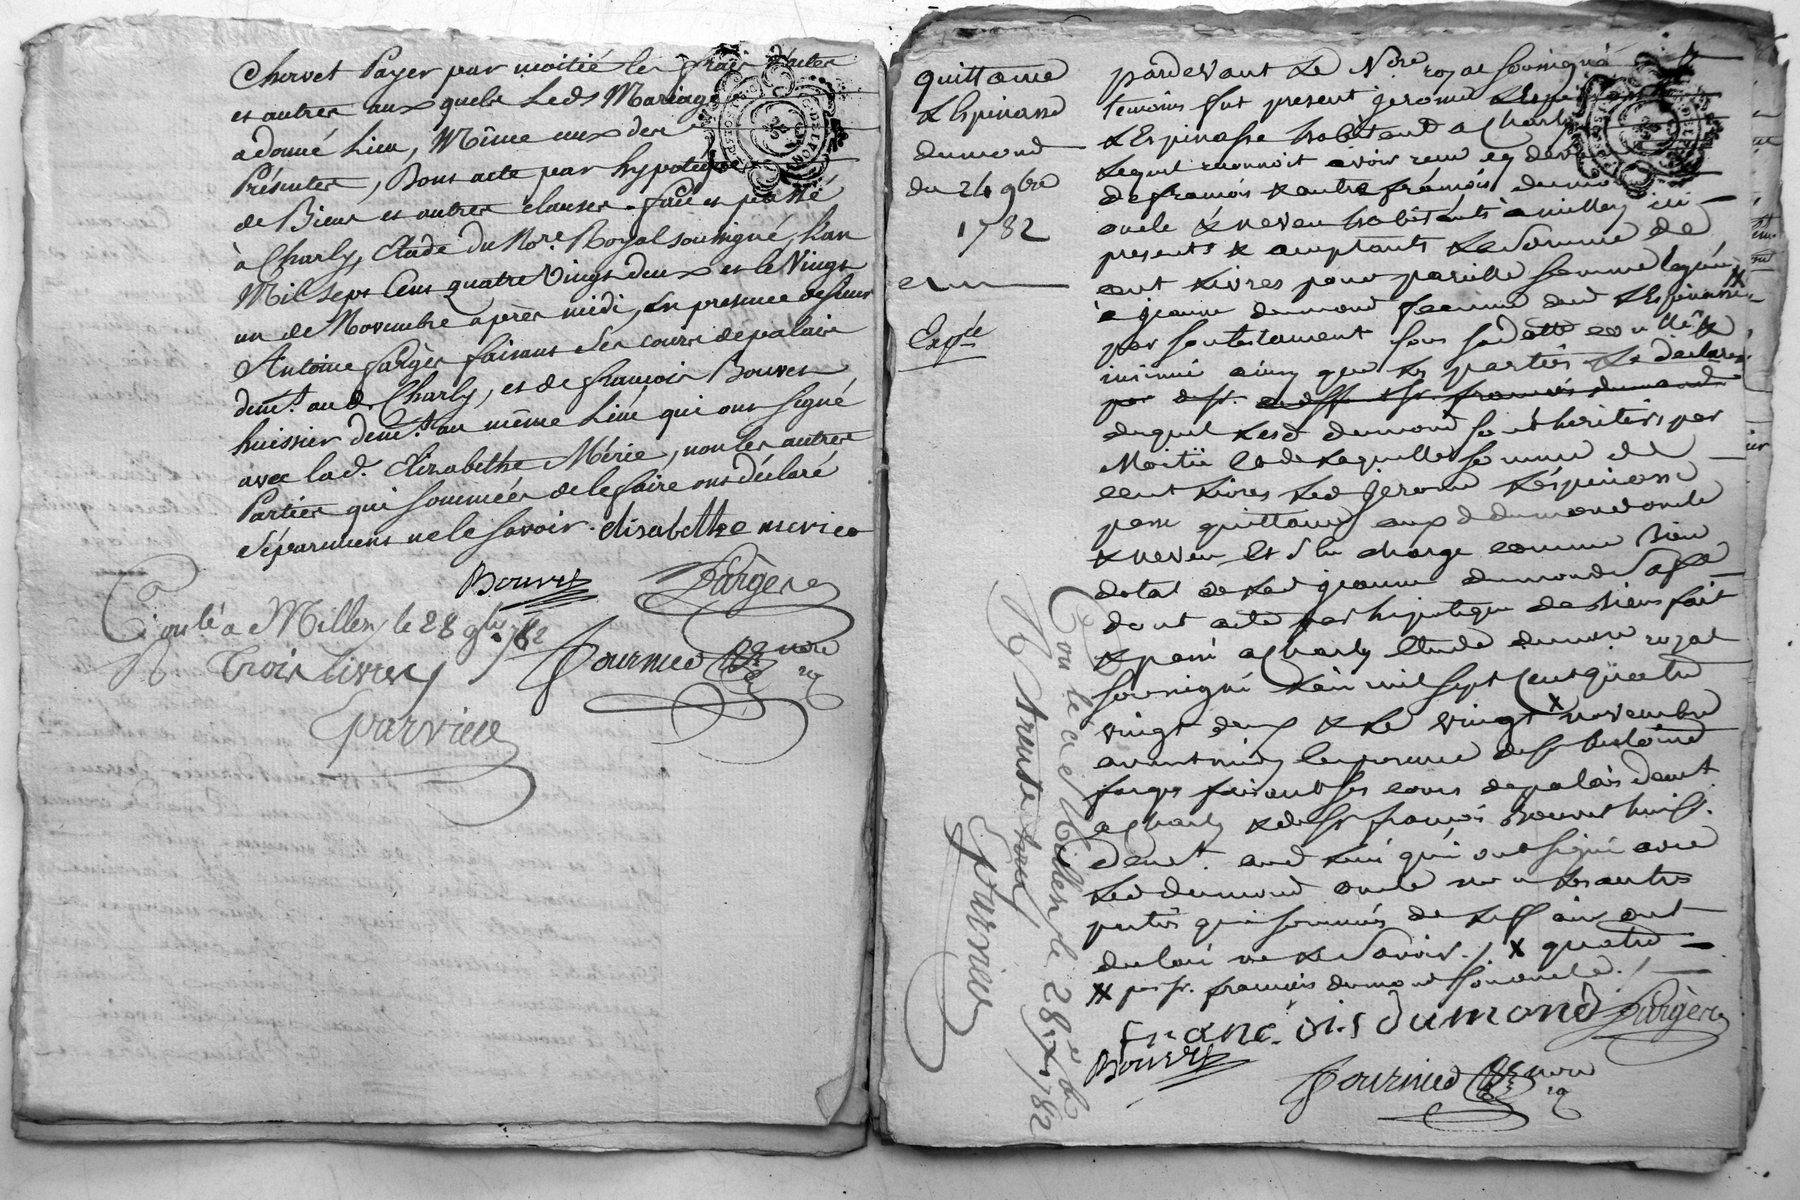 Chervet Payer par moitié les frais d'actes
et autres aux quels Leds Mariage
a donné Lieu, Même ceux des
Présentes, Dont acte par hypotéque
de Biens et autres clauses. fait et passé
à Charly, Etude du Nore Royal soussigné, L'an
Mil sept Cent quatre Vingt deux et le Vingt
un de Novembre après midi, En presence de sieurs
Antoine fargès faisant Les cours de palais
demt. aud. Charly, et de françois Bouvet
huissier demt. au même Lieu qui ont signé
avec lad. Elizabethe Mérie, non les autres
Parties qui sommées de le faire ont déclaré
séparement ne le savoir. elisabethe merieo
Bouvet fargère
Conlé a Millery le 28 9bre 1782
trois livres
Fournier nore
rg
parvieu
quittance
Lespinasse
dumond
du 24 9bre
1782
Expée
pardevant Le Nore royal soussigné
temoins fut present jerome
Lespinasse habitant a Charly
Lequel reconnoit avoir reçu cy dev
de francois & autre francois dumo
oncle & neveu habitants a millery ici
presents & acceptants La somme de
cent Livres pour pareille somme leguée
a jeanne dumond femme dud Lespinasse
par son testament sous sa datte
insinué ainsy que les parties Le declarent
par
duquel Lesd dumond sont heritiers par
Moitié de Laquelle somme de
cent Livres Led jerome Lespinasse
passe quittance aux d dumond oncle
& neveu Et S'en charge comme Bien
dotal de Lad jeanne dumond sa fe
dont acte par hipoteque de Biens fait
& passé a Charly Etude du nore royal
soussigné L'an mil sept Cent quatre
vingt deux & Le vingt x novembre
avant midy En presence de sr Antoine
farges faisant les cours de palais demt
a Charly & de sr francois Bouvet huiss.
demt. aud Lieu qui ont signé avec
Led dumond oncle non Les autres
parties qui sommés de Le faire ont
declaré ne Le Savoir. /. x quatre
xx par sr. francois dumond son oncle. /
francois dumond fargère
Bouvet
Fournier nore
rg
Conlé a Millery le 28 9bre 1782
parvieu